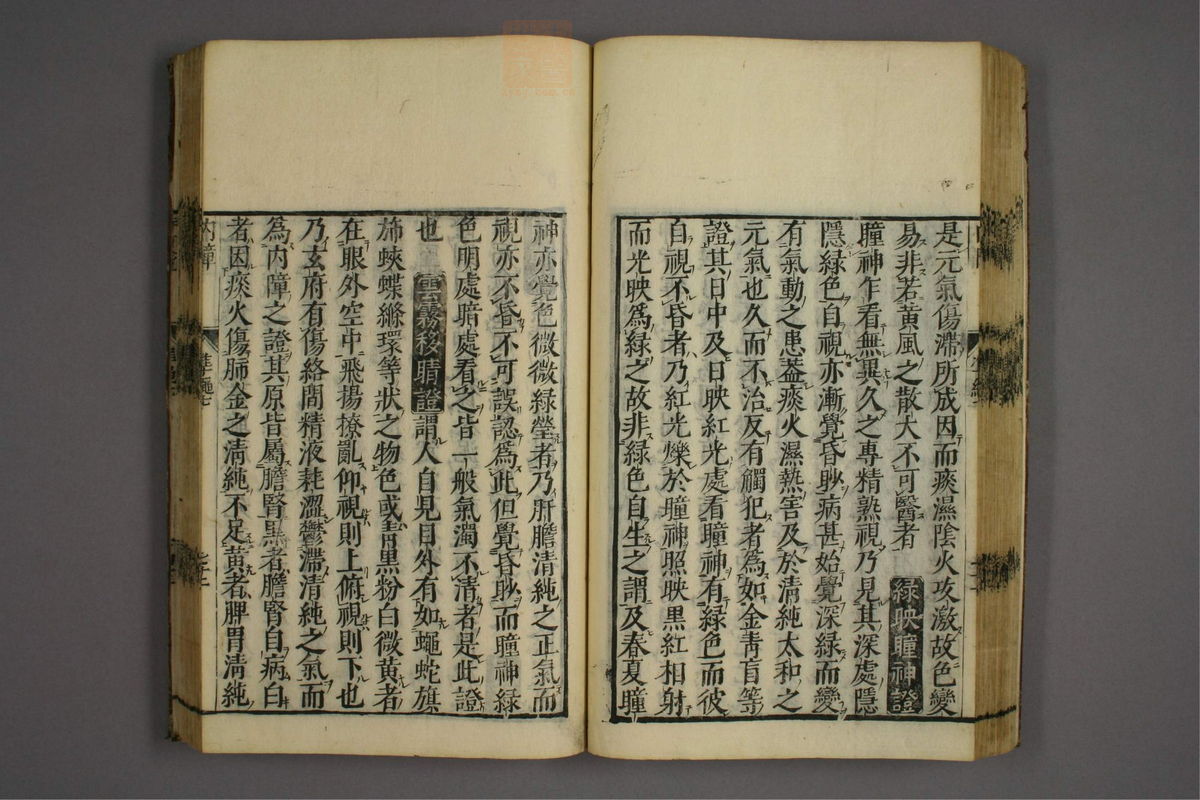 是元氣傷滯所成因而痰濕陰火攻激故色變
易非若黃風之散大不可醫者 綠映瞳神證
瞳神乍看無異久之專精熟視乃見其深處隱
隱綠色自視亦漸覺昏眇病甚始覺深綠而變
有氣動之患蓋痰火濕熱害及於清純太和之
元氣也久而不治反有觸犯者爲如金青盲等
證其日中及日映紅光處看瞳神有綠色而彼
自視不昏者乃紅光爍於瞳神照映黑紅相射
而光映爲綠之故非綠色自生之謂及春夏瞳
神亦覺色微微綠瑩者乃肝膽清純之正氣而
視亦不昏不可誤認爲此但覺昏眇而瞳神綠
色明處暗處看之皆一般氣濁不清者是此證
也 雲霧移睛證 謂人自見目外有如蠅蛇旗
斾蛺蝶絛環等狀之物色或青黑粉白微黃者
在眼外空中飛揚撩亂仰視則上俯視則下也
乃玄府有傷絡間精液耗澀鬱滯清純之氣而
爲內障之證其原皆屬膽腎黑者膽腎自病白
者因痰火傷肺金之清純不足黃者脾胃清純
內障